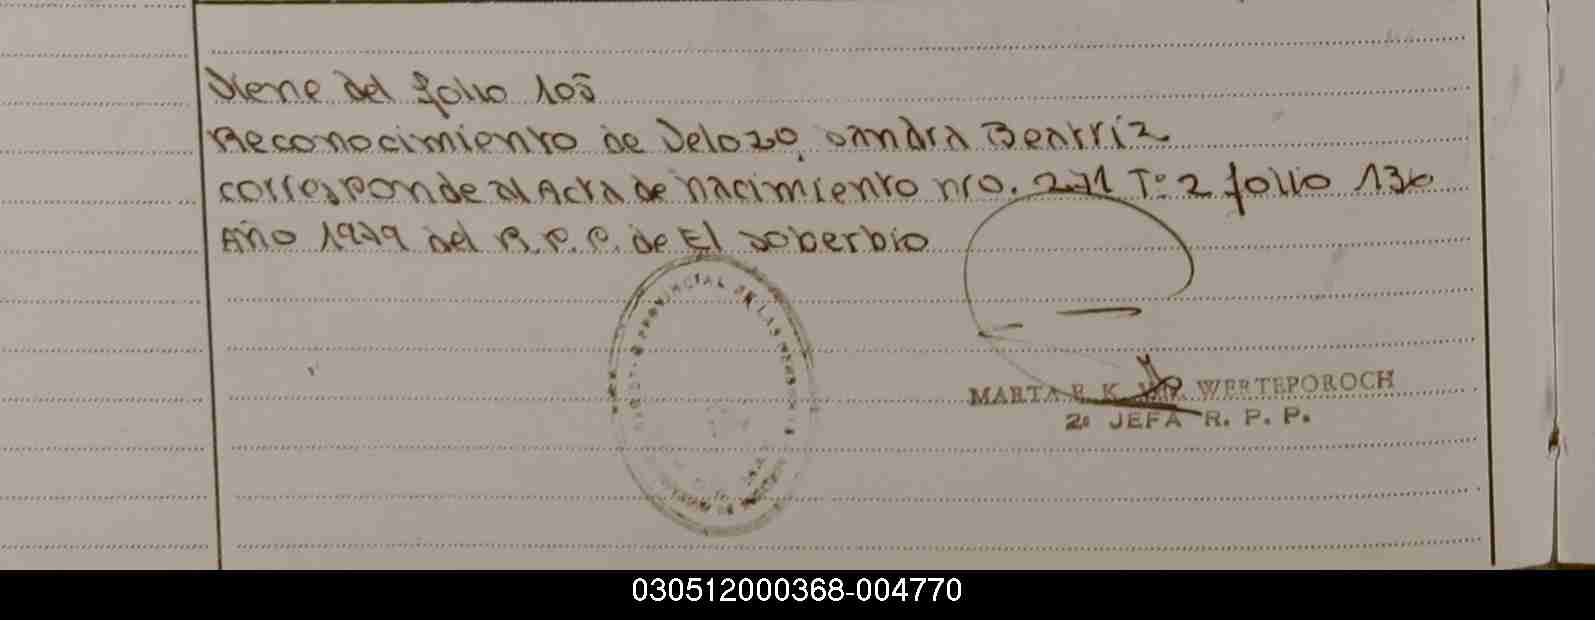 Viene del folio 105
Reconocimiento de Velozo, Sandra Beatríz
corresponde al Acta de nacimiento nro. 271 Tº 2 folio 136
Año 1979 del R.P.P. de El Soberbio
PROVINCIAL DE LAS PERSONAS
MARTA E. K. WERTEPOROCH
2º JEFA R. P. P.
030512000368-004770